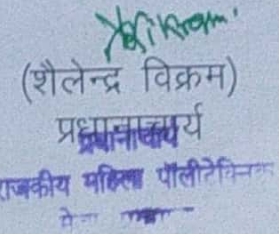 (शैलेन्द्र विक्रम)
प्रधानाचार्य
प्रधानाचार्य
राजकीय महिला पॉलीटेक्निक